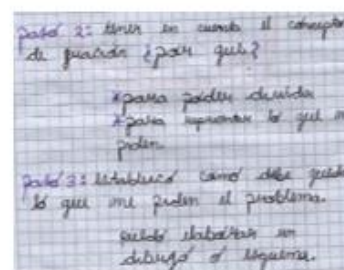 paso 2: tener en cuenta el concepto
de fracción ¿por qué?
*para poder dividir
*para representar lo que me
piden.
paso 3: establezco como debe quedar
lo que me piden el problema.
puedo elaborar un
dibujo o esquema.